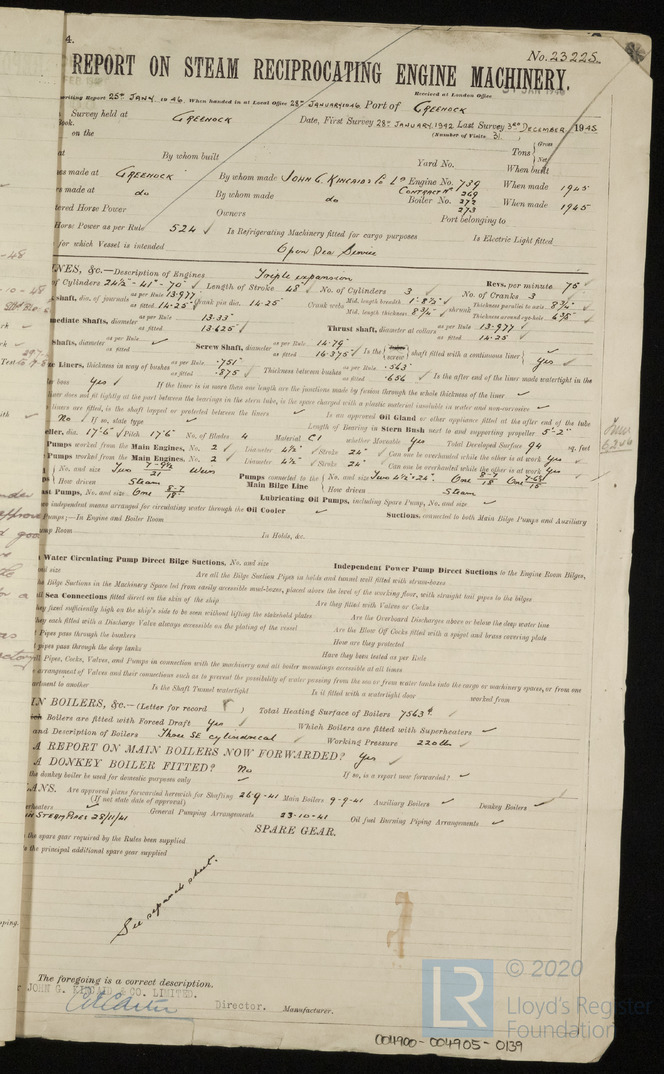 4.
No. 23225.
REPORT ON STEAM RECIPROCATING ENGINE MACHINERY.
Received at London Office
writing Report 25th JANY. 1946. When handed in at Local Office 28th JANUARY 1946. Port of GREENOCK
Survey held at GREENOCK Date, First Survey 28th JANUARY, 1942 Last Survey 3rd DECEMBER, 1945
Book. (Number of Visits 31.)
on the Tons { Gross Net
at By whom built Yard No. When built
es made at GREENOCK By whom made JOHN G. KINCAID & Co Ld Engine No. 739 When made 1945
CONTRACT No 269
rs made at do By whom made do Boiler No. 272 273 When made 1945
tered Horse Power Owners Port belonging to
Horse Power as per Rule 524 ✓ Is Refrigerating Machinery fitted for cargo purposes Is Electric Light fitted
for which Vessel is intended Open Sea Service
INES, &c.—Description of Engines. Triple expansion Revs. per minute 75 ✓
of Cylinders 24½" - 41" - 70" ✓ Length of Stroke 48 ✓ No. of Cylinders 3 No. of Cranks 3
shaft, dia. of journals as per Rule 13.977 as fitted 14.25 Crank pin dia. 14.25 Crank webs Mid. length breadth 1'-8½" ✓ Mid. length thickness 8¾" ✓ shrunk Thickness parallel to axis 8¾" ✓ Thickness around eye-hole
mediate Shafts, diameter as per Rule 13.33 as fitted 13.625 ✓ Thrust shaft, diameter at collars as per Rule 13.977 as fitted 14.25 ✓
Shafts, diameter as per Rule as fitted ✓ Screw Shaft, diameter as per Rule 14.79 as fitted 16.375 ✓ Is the { screw } shaft fitted with a continuous liner { Yes ✓
ze Liners, thickness in way of bushes as per Rule .751 as fitted .875 ✓ Thickness between bushes as per Rule .563 as fitted .656 ✓ Is the after end of the liner made watertight in the
ler boss Yes ✓ If the liner is in more than one length are the junctions made by fusion through the whole thickness of the liner ✓
iner does not fit tightly at the part between the bearings in the stern tube, is the space charged with a plastic material insoluble in water and non-corrosive ✓
liners are fitted, is the shaft lapped or protected between the liners ✓ Is an approved Oil Gland or other appliance fitted at the after end of the tube
No ✓ If so, state type ✓ Length of Bearing in Stern Bush next to and supporting propeller 5'-2"
eller, dia. 17'6" ✓ Pitch 17'6" No. of Blades 4 Material C I whether Moveable Yes Total Developed Surface 94 sq. feet
Pumps worked from the Main Engines, No. 2 ✓ Diameter 4½" ✓ Stroke 24" ✓ Can one be overhauled while the other is at work Yes ✓
Pumps worked from the Main Engines, No. 2 ✓ Diameter 4½" ✓ Stroke 24" ✓ Can one be overhauled while the other is at work Yes ✓
No. and size Two Weirs Pumps connected to the Main Bilge Line { No. and size Two 4½" × 24". One One
How driven Steam How driven Steam
st Pumps, No. and size One Lubricating Oil Pumps, including Spare Pump, No. and size ✓
o independent means arranged for circulating water through the Oil Cooler ✓ Suctions, connected to both Main Bilge Pumps and Auxiliary
Pumps;—In Engine and Boiler Room
ump Room In Holds, &c.
Water Circulating Pump Direct Bilge Suctions, No. and size Independent Power Pump Direct Suctions to the Engine Room Bilges,
nd size Are all the Bilge Suction Pipes in holds and tunnel well fitted with strum-boxes
he Bilge Suctions in the Machinery Space led from easily accessible mud-boxes, placed above the level of the working floor, with straight tail pipes to the bilges
all Sea Connections fitted direct on the skin of the ship Are they fitted with Valves or Cocks
hey fixed sufficiently high on the ship's side to be seen without lifting the stokehold plates Are the Overboard Discharges above or below the deep water line
hey each fitted with a Discharge Valve always accessible on the plating of the vessel Are the Blow Off Cocks fitted with a spigot and brass covering plate
Pipes pass through the bunkers How are they protected
pipes pass through the deep tanks Have they been tested as per Rule
ll Pipes, Cocks, Valves, and Pumps in connection with the machinery and all boiler mountings accessible at all times
e arrangement of Valves and their connections such as to prevent the possibility of water passing from the sea or from water tanks into the cargo or machinery spaces, or from one
artment to another Is the Shaft Tunnel watertight Is it fitted with a watertight door worked from
IN BOILERS, &c.—(Letter for record ) Total Heating Surface of Boilers 7563
ich Boilers are fitted with Forced Draft Yes ✓ Which Boilers are fitted with Superheaters ✓
and Description of Boilers Three SE cylindrical ✓ Working Pressure 220 lb ✓
A REPORT ON MAIN BOILERS NOW FORWARDED? Yes ✓
A DONKEY BOILER FITTED? No If so, is a report now forwarded? ✓
the donkey boiler be used for domestic purposes only ✓
ANS. Are approved plans forwarded herewith for Shafting 26-9-41 Main Boilers 9-9-41 Auxiliary Boilers ✓ Donkey Boilers ✓
(If not state date of approval)
erheaters ✓ General Pumping Arrangements 23-10-41 Oil fuel Burning Piping Arrangements ✓
IN STEAM PIPES 28/11/41
SPARE GEAR.
the spare gear required by the Rules been supplied
the principal additional spare gear supplied
See separate sheet.
The foregoing is a correct description.
JOHN G. KINCAID & CO. LIMITED.
Director. Manufacturer.
LR © 2020
Lloyd's Register
Foundation
004900-004905-0139